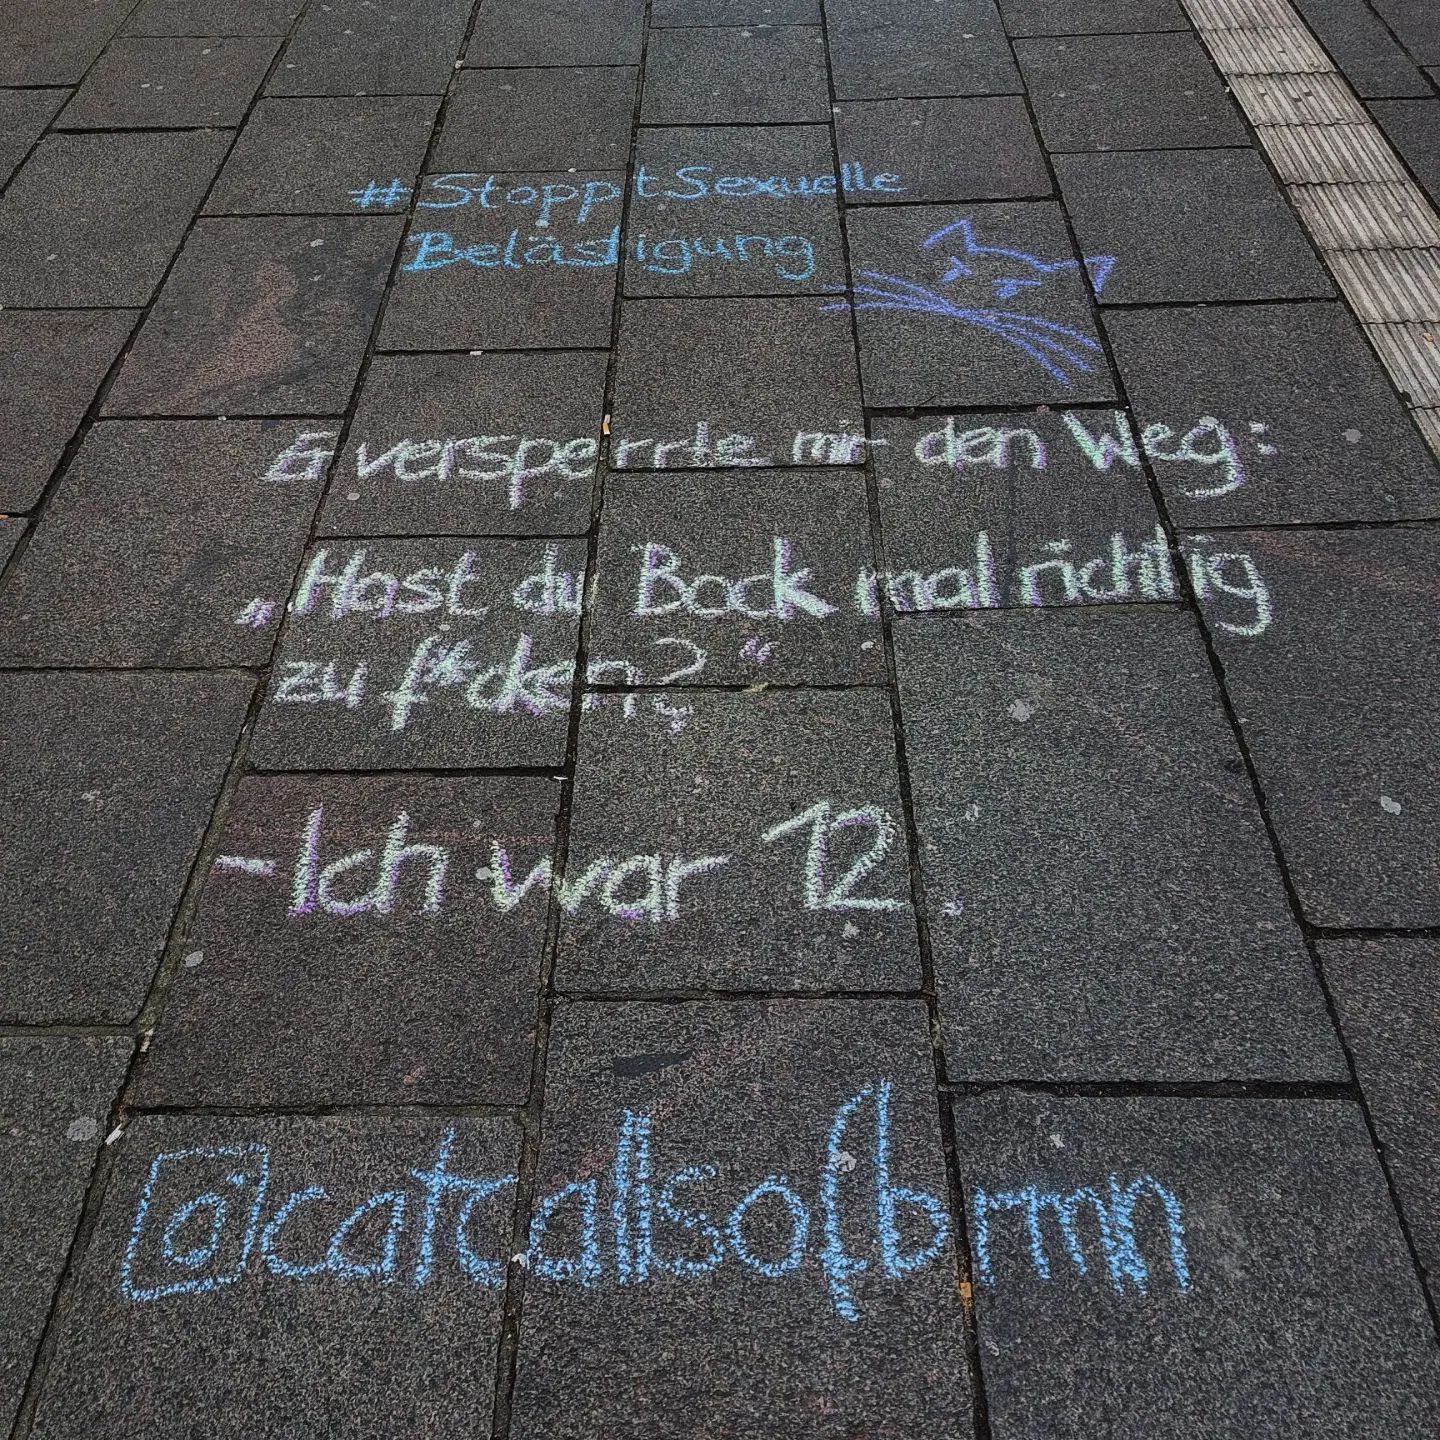 #StopptSexuelle
Belästigung
Er versperrte mir den Weg:
„Hast du Bock mal richtig
zu f*cken?"
- Ich war 12.
@catcallsofbrmn